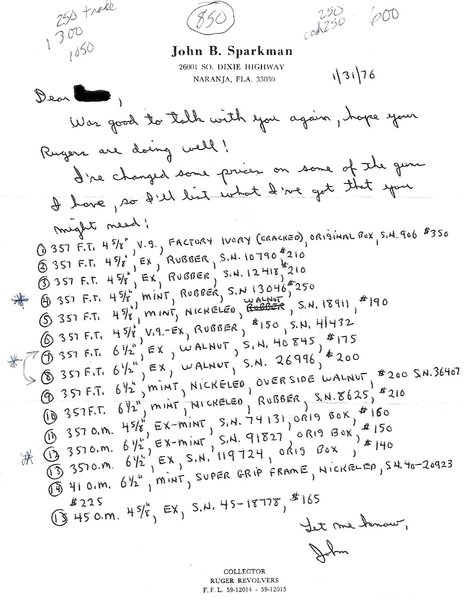 250 trade
1300
1050
850
250
cash 250
600
John B. Sparkman
26001 SO. DIXIE HIGHWAY
NARANJA, FLA. 33030
1/31/76
Dear ,
Was good to talk with you again, hope your
Rugers are doing well!
I've changed some prices on some of the guns
I have, so I'll list what I've got that you
might need:
① 357 F.T. 4 5/8", V.G., FACTORY IVORY (CRACKED), ORIGINAL BOX, S.N. 906 $350
② 357 F.T. 4 5/8", EX, RUBBER, S.N. 10790 $210
③ 357 F.T. 4 5/8", EX, RUBBER, S.N. 12418, $210
* ④ 357 F.T. 4 5/8", MINT, RUBBER, S.N 13046, $250
⑤ 357 F.T. 4 5/8", MINT, NICKELED, WALNUT RUBBER, S.N. 18911, $190
⑥ 357 F.T. 4 5/8", V.G.-EX, RUBBER, $150, S.N. 41432
* ⑦ 357 F.T. 6 1/2", EX, WALNUT, S.N. 40845, $175
⑧ 357 F.T. 6 1/2", EX, WALNUT, S.N. 26996, $200
⑨ 357 F.T. 6 1/2", MINT, NICKELED, OVERSIDE WALNUT, $200 S.N. 36407
⑩ 357 F.T. 6 1/2", MINT, NICKELED, RUBBER, S.N. 8625, $210
⑪ 357 O.M. 4 5/8", EX-MINT, S.N. 74131, ORIG BOX, $160
* ⑫ 357 O.M. 6 1/2", EX-MINT, S.N. 91827, ORIG BOX, $150
⑬ 357 O.M. 6 1/2", EX, S.N. 119724, ORIG BOX, $140
⑭ 41 O.M. 6 1/2", MINT, SUPER GRIP FRAME, NICKELED, S.N. 40-20923
$225
⑮ 45 O.M. 4 5/8", EX, S.N. 45-18778, $165
Let me know,
John
COLLECTOR
RUGER REVOLVERS
F. F. L. 59-12014 - 59-12015